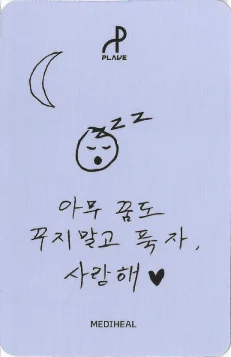 PLAVE
zzz
아무 꿈도
꾸지말고 푹 자,
사랑해 ♥
MEDIHEAL